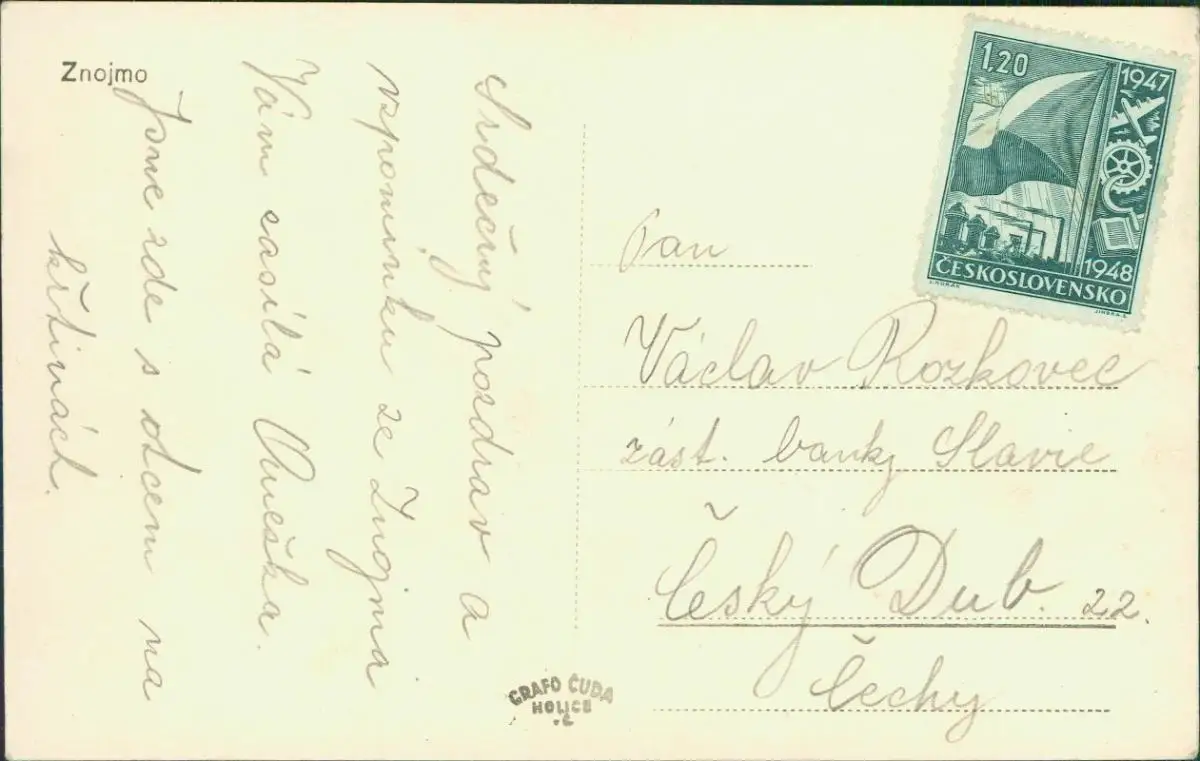 Znojmo
Srdečný pozdrav a
vzpomínku ze Znojma
Vám zasílá Anežka.
Jsme zde s otcem na
křtinách.
GRAFO ČUDA
HOLICE
Pan
Václav Rozkovec
zást. banky Slavie
Český Dub. 22.
Čechy
1.20
1947
1948
ČESKOSLOVENSKO